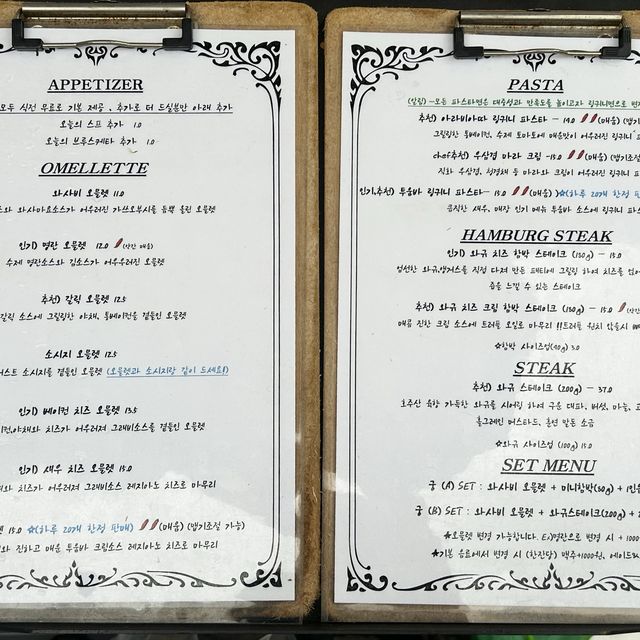 APPETIZER
모두 식전 무료로 기본 제공, 추가로 더 드실분만 아래 추가
오늘의 스프 추가 1.0
오늘의 브루스케타 추가 1.0
OMELLETTE
와사비 오믈렛 11.0
와사마요소스가 어우러진 가쓰오부시를 듬뿍 올린 오믈렛
인기) 명란 오믈렛 12.0 (약간 매움)
수제 명란소스와 김소스가 어우러진 오믈렛
추천) 갈릭 오믈렛 12.5
갈릭 소스에 그릴링한 야채, 통베이컨을 곁들인 오믈렛
소시지 오믈렛 12.5
소시지를 곁들인 오믈렛 (오믈렛과 소시지랑 같이 드세요!)
인기) 베이컨 치즈 오믈렛 13.5
야채와 치즈가 어우러져 그래비소스를 곁들인 오믈렛
인기) 새우 치즈 오믈렛 15.0
치즈가 어우러져 그래비소스 레지아노 치즈로 마무리
15.0 ☆(하루 20개 한정 판매) (매움) (맵기조절 가능)
진하고 매운 투움바 크림소스 레지아노 치즈로 마무리
PASTA
(알림) -모든 파스타면은 대중성과 만족도를 높이고자 링귀니면으로
추천) 아라비아따 링귀니 파스타 - 14.0 (매움)
그릴링한 통베이컨, 수제 토마토에 매운맛이 어우러진 링귀니
chef추천) 우삼겹 마라 크림 -15.0 (매움) (맵기조절
직화 우삼겹, 청경채 등 마라와 크림이 어우러진 링귀니
인기,추천) 투움바 링귀니 파스타- 15.0 (매움) ☆(하루 20개 한정
큼직한 새우, 매장 인기 메뉴 투움바 소스에 링귀니
HAMBURG STEAK
인기) 와규 치즈 함박 스테이크 (150g) - 15.0
엄선한 와규,앵거스를 직접 다져 만든 패티에 그릴링 하여 치즈를
즙을 느낄 수 있는 스테이크
추천) 와규 치즈 크림 함박 스테이크 (150g) - 15.0
매콤 진한 크림 소스에 트러플 오일로 마무리
☆함박 사이즈업(90g) 3.0
STEAK
추천) 와규 스테이크 (200g) - 37.0
호주산 육향 가득한 와규를 시어링 하여 구운 대파, 버섯, 마늘,
홀그레인 머스타드, 훈연 말돈 소금
☆와규 사이즈업 (100g) 15.0
SET MENU
궁 (A) SET : 와사비 오믈렛 + 미니함박(90g) +
궁 (B) SET : 와사비 오믈렛 + 와규스테이크(200g) +
★오믈렛 변경 가능합니다. Ex)명란으로 변경 시 + 1000
★기본 음료에서 변경 시 (한잔당) 맥주+1000원,